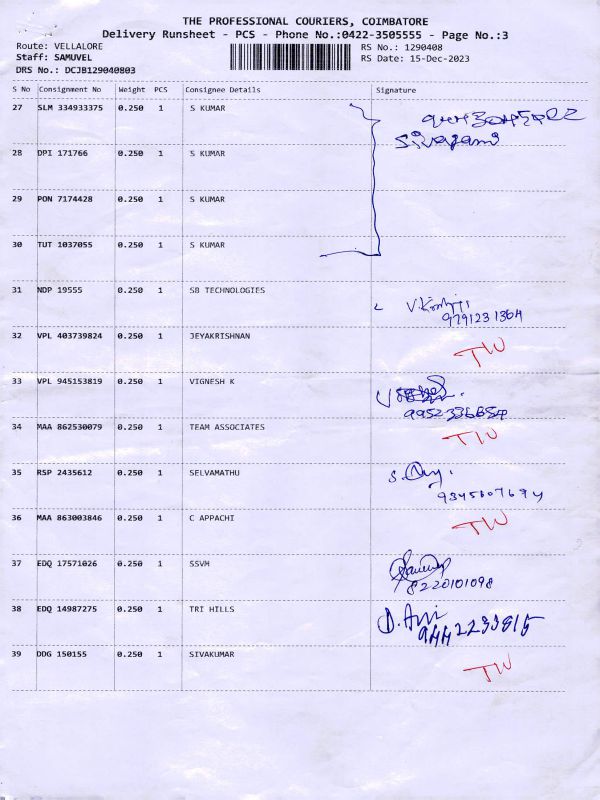 THE PROFESSIONAL COURIERS, COIMBATORE
Delivery Runsheet - PCS - Phone No.:0422-3505555 - Page No.:3
Route: VELLALORE RS No.: 1290408
Staff: SAMUVEL RS Date: 15-Dec-2023
DRS No.: DCJB129040803
S No Consignment No Weight PCS Consignee Details Signature
27 SLM 334933375 0.250 1 S KUMAR
Sivagami
28 DPI 171766 0.250 1 S KUMAR
29 PON 7174428 0.250 1 S KUMAR
30 TUT 1037055 0.250 1 S KUMAR
31 NDP 19555 0.250 1 SB TECHNOLOGIES
9791231364
32 VPL 403739824 0.250 1 JEYAKRISHNAN TW
33 VPL 945153819 0.250 1 VIGNESH K
9952336654
34 MAA 862530079 0.250 1 TEAM ASSOCIATES TW
35 RSP 2435612 0.250 1 SELVAMATHU
9345607694
36 MAA 863003846 0.250 1 C APPACHI TW
37 EDQ 17571026 0.250 1 SSVM
8220101098
38 EDQ 14987275 0.250 1 TRI HILLS
9442233815
39 DDG 150155 0.250 1 SIVAKUMAR TW